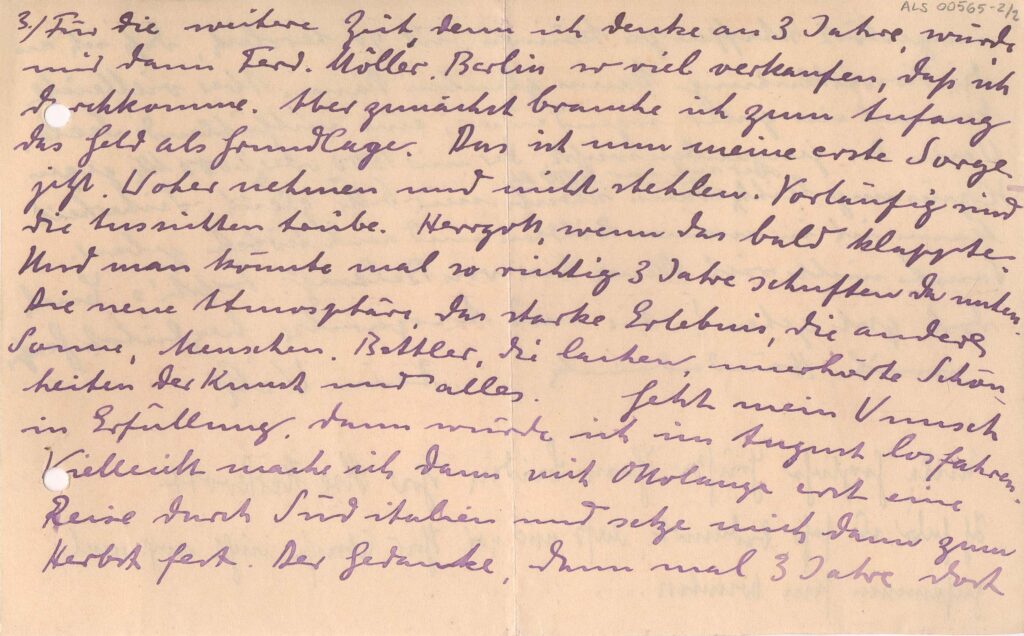 ALS 00565-2/2
3/ Für die weitere Zeit, denn ich denke an 3 Jahre, würde
mir dann Ferd. Möller, Berlin so viel verkaufen, daß ich
durchkomme. Aber zunächst brauche ich zum Anfang
das Geld als Grundlage. Das ist nun meine erste Sorge
jetzt. Woher nehmen und nicht stehlen. Vorläufig sind
die Aussichten trübe. Herrgott, wenn das bald klappte.
Und man könnte mal so richtig 3 Jahre schuften da unten.
Die neue Atmosphäre, das starke Erlebnis, die andere
Sonne, Menschen. Bettler, die lachen, unerhörte Schön-
heiten der Kunst und alles. Geht mein Wunsch
in Erfüllung, dann würde ich im August losfahren.
Vielleicht mache ich dann mit Otto Lange erst eine
Reise durch Süditalien und setze mich dann zum
Herbst fest. Der Gedanke, dann mal 3 Jahre dort